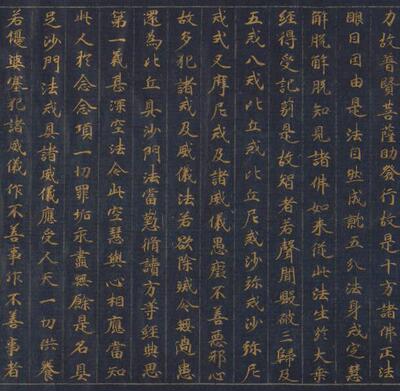 力故普賢菩薩助發行故是十方諸佛正法
眼目因由是法自然成就五分法身戒定慧
解脫解脫知見諸佛如来從此法生於大乗
經得受記莂是故智者若聲聞毀破三歸及
五戒八戒比丘戒比丘尼戒沙弥戒沙弥尼
戒式叉摩尼戒及諸威儀愚癡不善惡邪心
故多犯諸戒及威儀法若欲除滅令無過患
還為比丘具沙門法當懃脩讀方等經典思
第一義甚深空法令此空慧與心相應當知
此人於念念頃一切罪垢永盡無餘是名具
足沙門法戒具諸威儀應受人天一切供養
若優婆塞犯諸威儀作不善事作不善事者